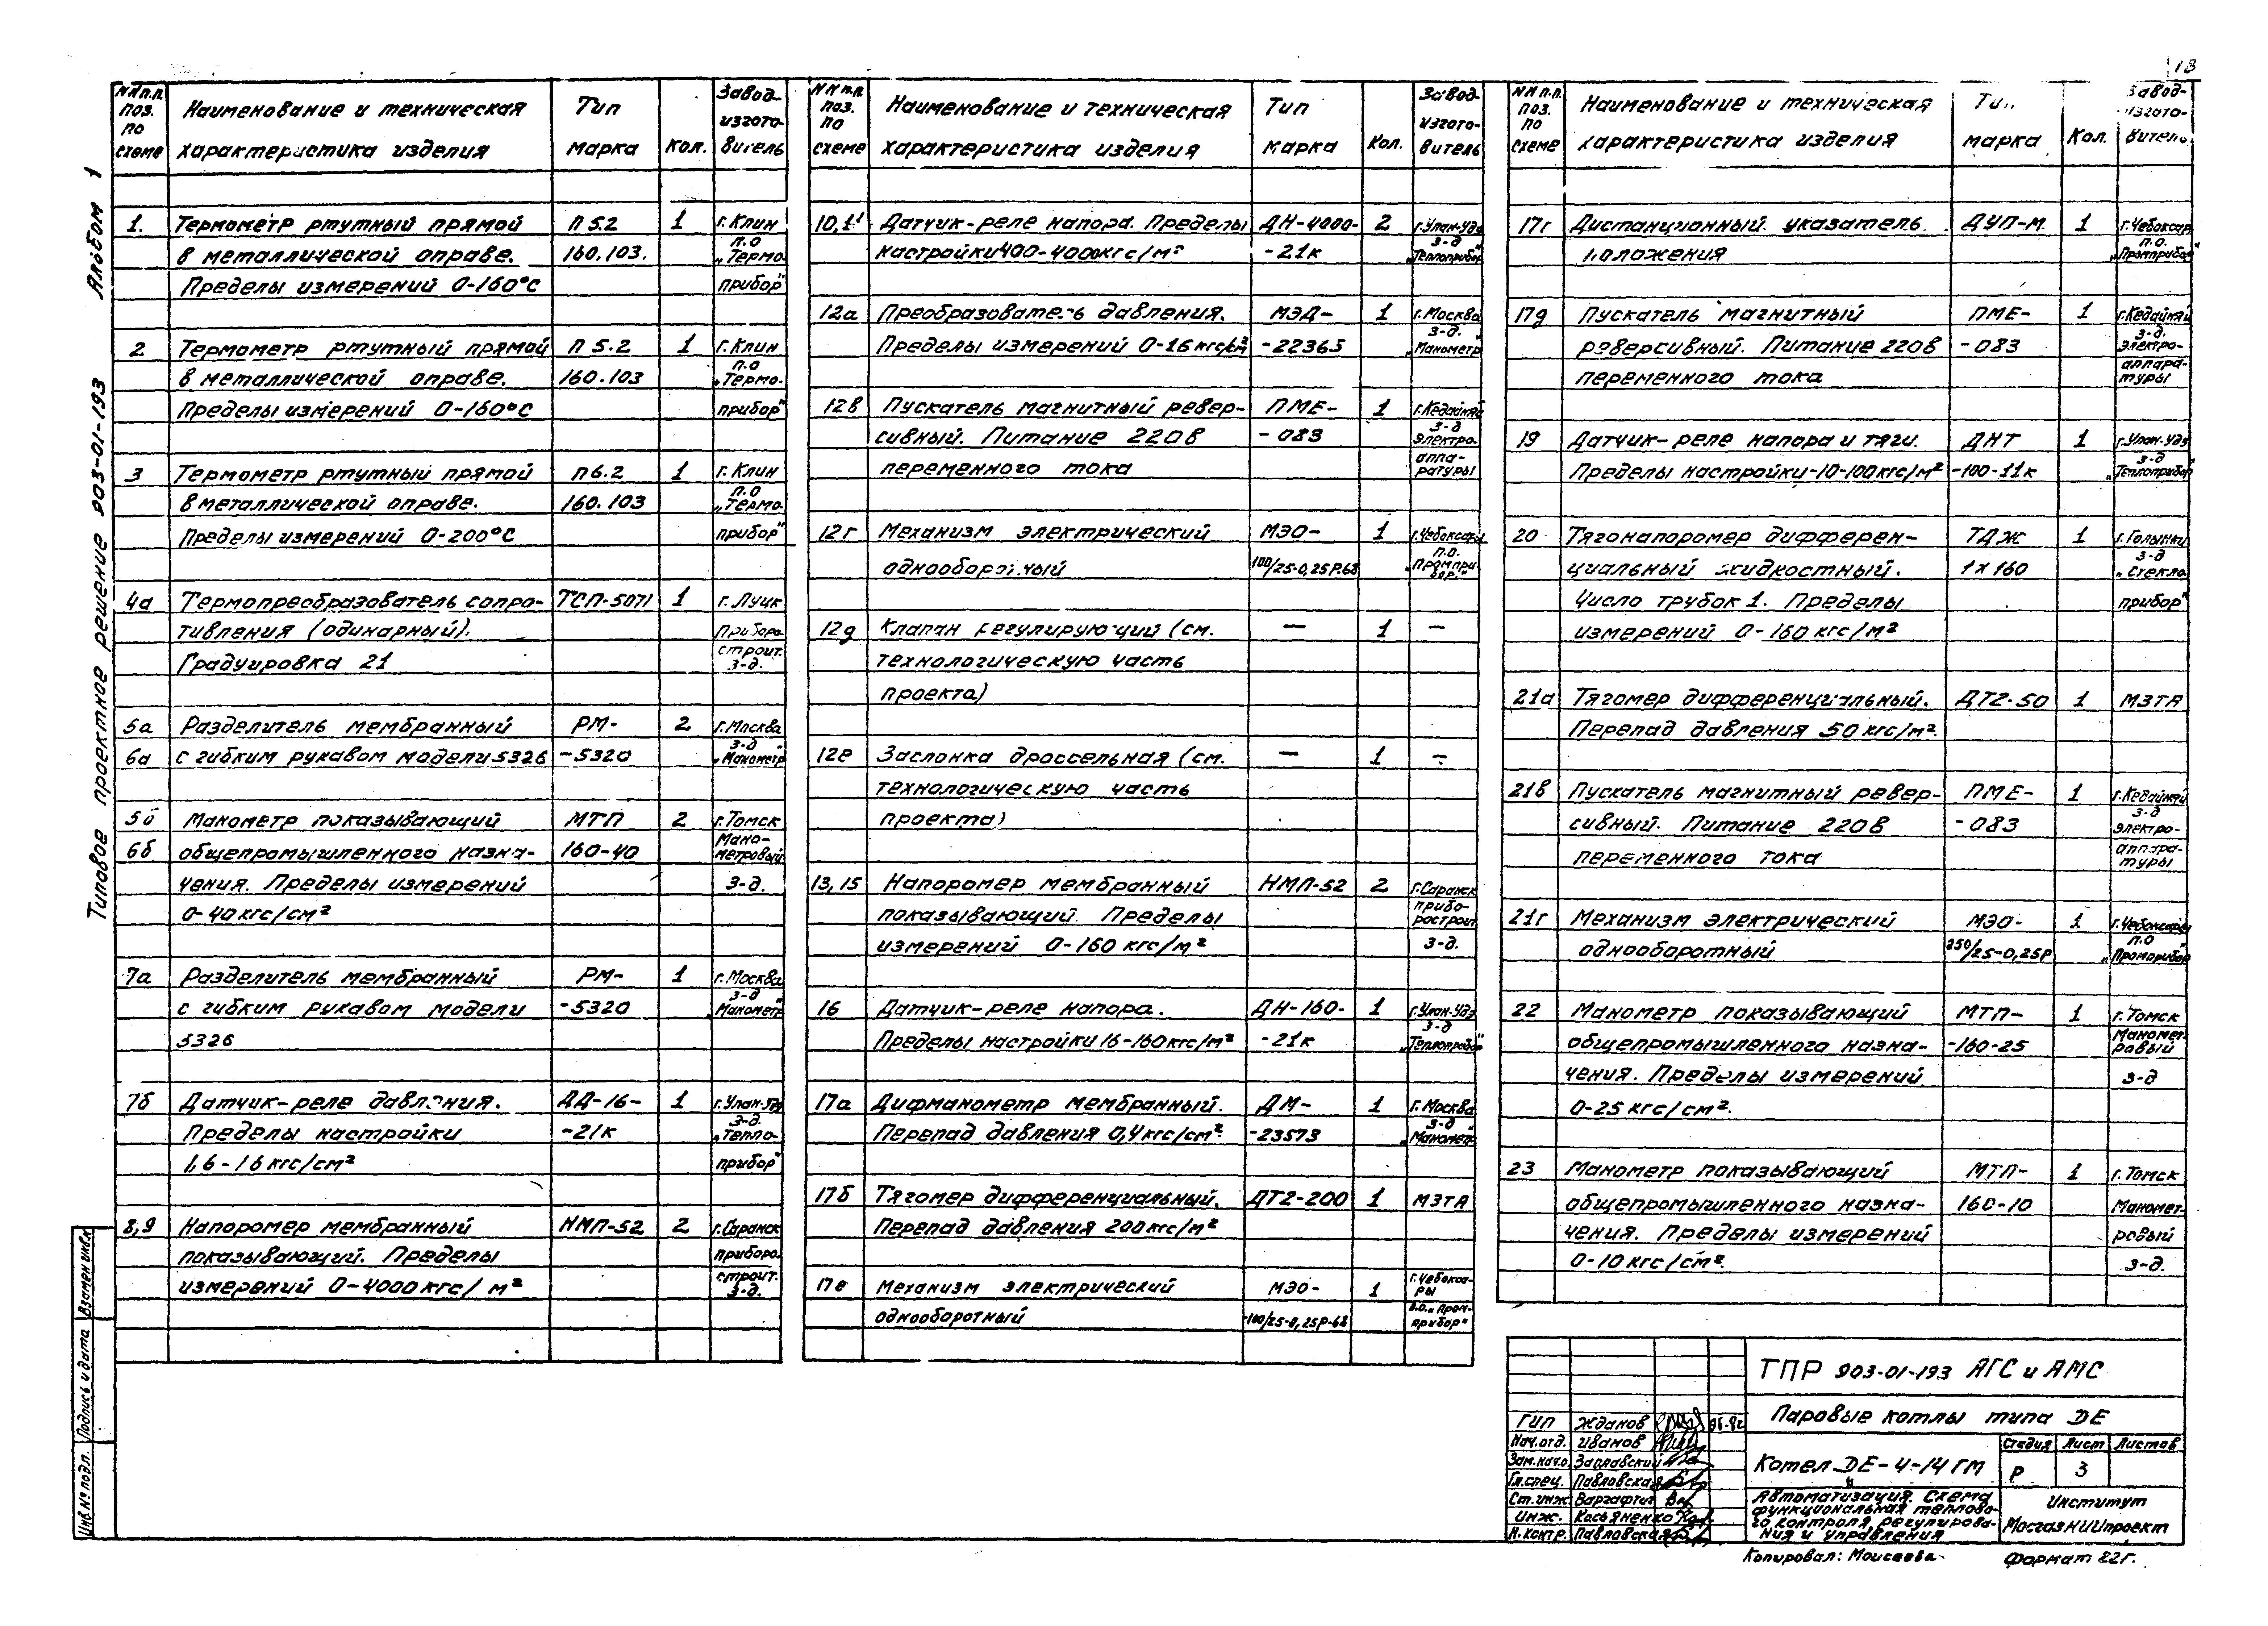 18
Альбом 1
Типовое проектное решение 903-01-193
NN п.п. поз. по схеме | Наименование и техническая характеристика изделия | Тип марка | Кол. | Завод-изготовитель
1. Термометр ртутный прямой П 5.2 1 г. Клин
в металлической оправе. 160.103. п.о „Термо
Пределы измерений 0-160°С прибор"
2 Термометр ртутный прямой П 5.2 1 г. Клин
в металлической оправе. 160.103 п.о „Термо-
Пределы измерений 0-160°С прибор"
3 Термометр ртутный прямой П6.2 1 г. Клин
в металлической оправе. 160.103 п.о „Термо
Пределы измерений 0-200°С прибор"
4а Термопреобразователь сопро- ТСП-5071 1 г. Луцк
тивления (одинарный). Приборо
Градуировка 21 строит. з-д.
5а Разделитель мембранный РМ- 2 г. Москва
6а с гибким рукавом модели 5326 -5320 з-д „Манометр"
5б Манометр показывающий МТП 2 г. Томск
6б общепромышленного назна- 160-40 Мано-метровый
чения. Пределы измерений з-д.
0-40 кгс/см²
7а Разделитель мембранный РМ- 1 г. Москва
с гибким рукавом модели -5320 з-д „Манометр"
5326
7б Датчик-реле давления. ДД-16- 1 г. Улан-Удэ
Пределы настройки -21к з-д. „Тепло-
1,6-16 кгс/см² прибор"
8,9 Напоромер мембранный НМП-52 2 г. Саранск
показывающий. Пределы приборо
измерений 0-4000 кгс/м² строит. з-д.
NN п.п. поз. по схеме | Наименование и техническая характеристика изделия | Тип марка | Кол. | Завод-изготовитель
10,11 Датчик-реле напора. Пределы ДН-4000- 2 г. Улан-Удэ
настройки 400-4000 кгс/м² -21к з-д „Теплоприбор"
12а Преобразователь давления. МЭД- 1 г. Москва
Пределы измерений 0-16 кгс/см² -22365 з-д. „Манометр
12в Пускатель магнитный ревер- ПМЕ- 1 г. Кедайняй
сивный. Питание 220в -083 з-д электро.
переменного тока аппа-ратуры
12г Механизм электрический МЭО- 1 г. Чебоксары
однооборотный 100/25-0,25Р-68 п.о. „Промпри-бор."
12д Клапан регулирующий (см. — 1 —
технологическую часть
проекта)
12е Заслонка дроссельная (см. — 1 —
технологическую часть
проекта)
13, 15 Напоромер мембранный НМП-52 2 г. Саранск
показывающий. Пределы прибо-ростроит
измерений 0-160 кгс/м² з-д.
16 Датчик-реле напора. ДН-160- 1 г. Улан-Удэ
Пределы настройки 16-160 кгс/м² -21к з-д „Теплоприбор"
17а Дифманометр мембранный. ДМ- 1 г. Москва
Перепад давления 0,4 кгс/см². -23573 з-д „Манометр"
17б Тягомер дифференциальный. ДТ2-200 1 МЗТА
Перепад давления 200 кгс/м²
17е Механизм электрический МЭО- 1 г. Чебокса-ры
однооборотный -100/25-0,25Р-68 п.о. „Пром-прибор"
NN п.п. поз. по схеме | Наименование и техническая характеристика изделия | марка | Кол. | Завод-изготовитель
17г Дистанционный указатель ДУП-М. 1 г. Чебоксар
положения п.о. „Промприбор"
17д Пускатель магнитный ПМЕ- 1 г. Кедайняй
реверсивный. Питание 220в -083 з-д. электро-
переменного тока аппара-туры
19 Датчик-реле напора и тяги. ДНТ 1 г. Улан-Удэ
Пределы настройки-10-100 кгс/м² -100-11к з-д „Теплоприбор"
20 Тягонапоромер дифферен- ТДЖ 1 г. Голынки
циальный жидкостный. 1х160 з-д „Стекло
Число трубок 1. Пределы прибор"
измерений 0-160 кгс/м²
21а Тягомер дифференциальный. ДТ2-50 1 МЗТА
Перепад давления 50 кгс/м².
21в Пускатель магнитный ревер- ПМЕ- 1 г. Кедайняй
сивный. Питание 220в -083 з-д электро-
переменного тока аппара-туры
21г Механизм электрический МЭО- 1 г. Чебоксары
однооборотный 250/25-0,25Р п.о „Промприбор"
22 Манометр показывающий МТП- 1 г. Томск
общепромышленного назна- -160-25 Маномет-ровый
чения. Пределы измерений з-д
0-25 кгс/см².
23 Манометр показывающий МТП- 1 г. Томск
общепромышленного назна- 160-10 Маномет-
чения. Пределы измерений ровый
0-10 кгс/см². з-д.
Инв.№ подл. Подпись и дата Взамен инв.№
ТПР 903-01-193 АГС и АМС
Паровые котлы типа ДЕ
ГИП Жданов
Нач.отд. Иванов
Зам.нач.о Заплавский
Гл.спец. Павловская
Ст.инж. Варгафтиг
Инж. Касьяненко
Н.контр. Павловская
Котел ДЕ-4-14ГМ
Стадия Лист Листов
Р 3
Автоматизация. Схема
функциональная теплово-
го контроля регулирова-
ния и управления
Институт
МосгазНИИпроект
Копировал: Моисеева
формат 22г.